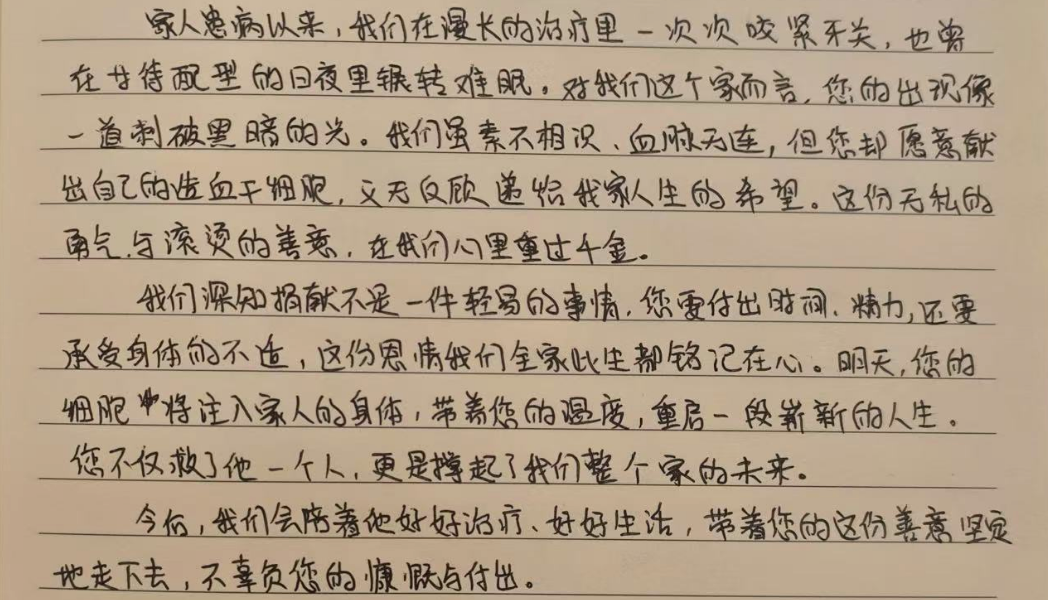 家人患病以来，我们在漫长的治疗里一次次咬紧牙关，也曾
在等待配型的日夜里辗转难眠。对我们这个家而言，您的出现像
一道刺破黑暗的光。我们虽素不相识、血脉无连，但您却愿意献
出自己的造血干细胞，义无反顾递给我家人生的希望。这份无私的
勇气、与滚烫的善意，在我们心里重过千金。
我们深知捐献不是一件轻易的事情，您要付出时间、精力，还要
承受身体的不适，这份恩情我们全家此生都铭记在心。明天，您的
细胞将注入家人的身体，带着您的温度，重启一段崭新的人生。
您不仅救了他一个人，更是撑起了我们整个家的未来。
今后，我们会陪着他好好治疗、好好生活，带着您的这份善意坚定
地走下去，不辜负您的慷慨与付出。